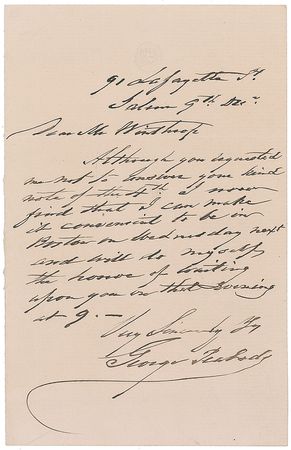 91 Lafayette St.
Salem 9th Dec.
Dear Mr Winthrop
Although you requested
me not to answer your kind
note of the 4th I now
find that I can make
it convenient to be in
Boston on Wednesday next
and will do myself
the honor of waiting
upon you on that Evening
at 9. —
Very Sincerely Yrs
George Peabody